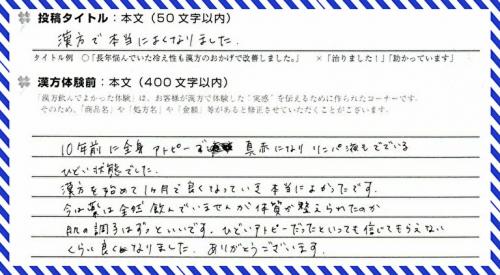 投稿タイトル：本文（50文字以内）
漢方で本当によくなりました.
タイトル例 ○「長年悩んでいた冷え性も漢方のおかげで改善しました。」 ×「治りました！」「助かっています」
漢方体験前：本文（400文字以内）
「漢方飲んでよかった体験」は、お客様が漢方で体験した“実感”を伝えるために作られたコーナーです。
そのため、「商品名」や「処方名」や「金額」等があると修正させていただくことがございます。
10年前に全身アトピーで 真赤になり リンパ液もでている
ひどい状態でした.
漢方を始めて1ヶ月で良くなっていき本当によかったです.
今は薬は全然飲んでいませんが体質が整えられたのか
肌の調子はずっといいです. ひどいアトピーだったといっても信じてもらえない
くらい良くなりました. ありがとうございます.